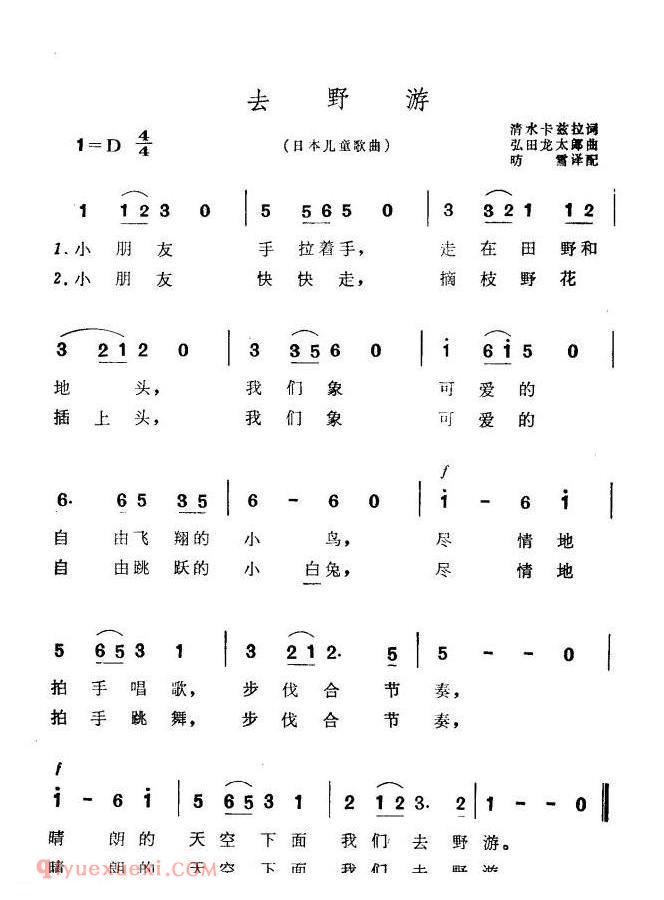 去 野 游
1=D 4/4
(日本儿童歌曲)
清水卡兹拉词
弘田龙太郎曲
昉 雪译配
1 1 2 3 0 | 5 5 6 5 0 | 3 3 2 1 1 2 |
1.小 朋 友 手 拉着手, 走 在 田 野和
2.小 朋 友 快 快走, 摘 枝 野 花
3 2 1 2 0 | 3 3 5 6 0 | i 6 i 5 0 |
地 头, 我 们 象 可 爱 的
插 上 头, 我 们 象 可 爱 的
f
6· 6 5 3 5 | 6 - 6 0 | i - 6 i |
自 由飞 翔的 小 鸟, 尽 情地
自 由跳 跃的 小 白兔, 尽 情地
5 6 5 3 1 | 3 2 1 2· 5 | 5 - - 0 |
拍 手 唱 歌, 步 伐 合 节 奏,
拍 手 跳 舞, 步 伐 合 节 奏,
f
i - 6 i | 5 6 5 3 1 | 2 1 2 3· 2 | 1 - - 0 ‖
晴 朗的 天 空 下 面 我 们 去 野 游。
晴 朗的 天 空 下 面 我 们 去 野 游
qiyuexuexi.com